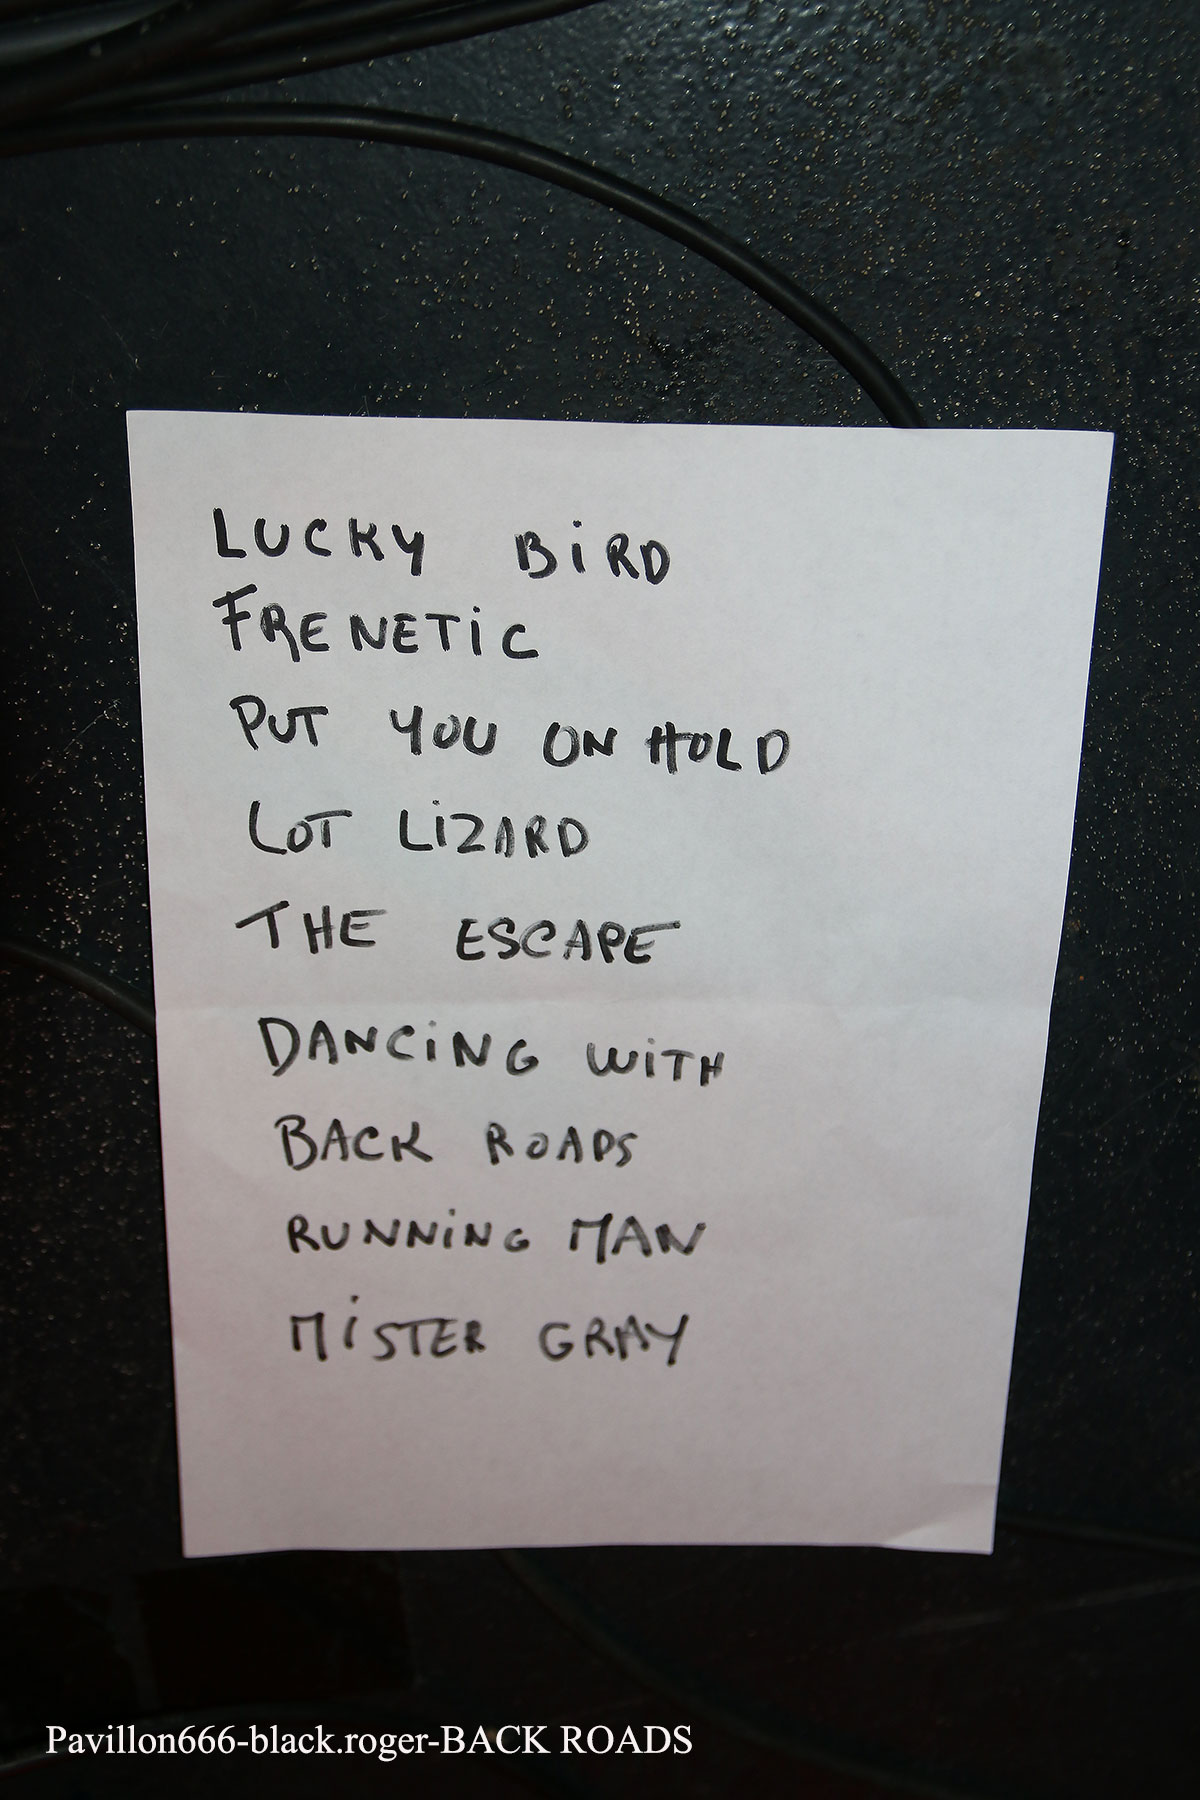 LUCKY BiRD
FRENETiC
PUT YOU ON HOLD
LOT LiZARD
THE ESCAPE
DANCiNG WiTH
BACK ROADS
RUNNiNG MAN
MiSTER GRAY
Pavillon666-black.roger-BACK ROADS